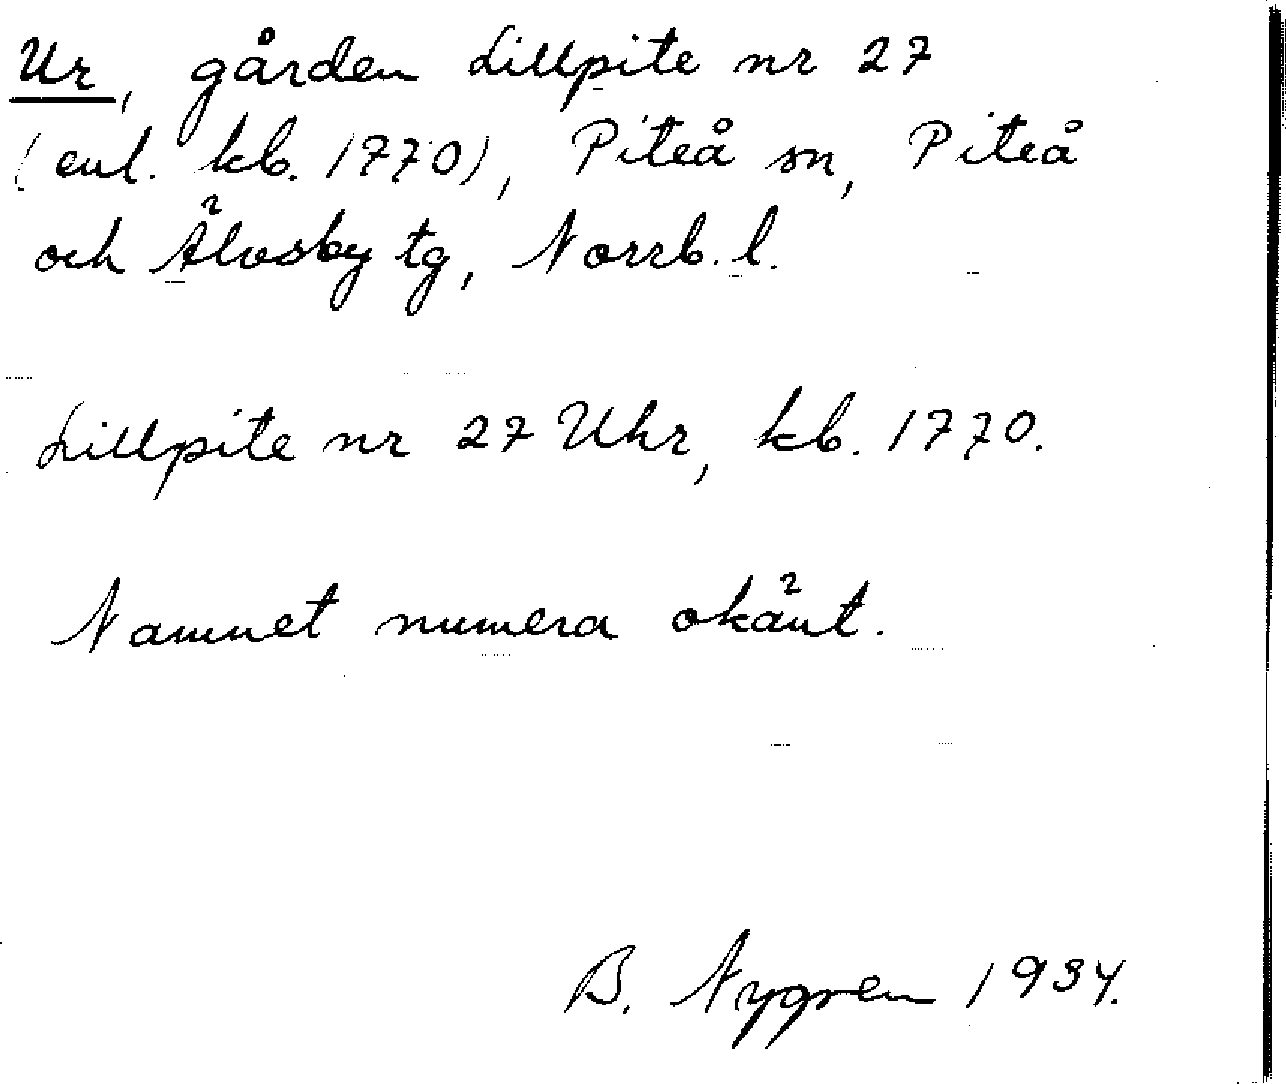 Ur, gården Lillpite nr 27
(enl. kb. 1770), Piteå sn, Piteå
och Älvsby tg, Norrb. l.
Lillpite nr 27 Uhr, kb. 1770.
Namnet numera okänt.
B. Nygren 1934.